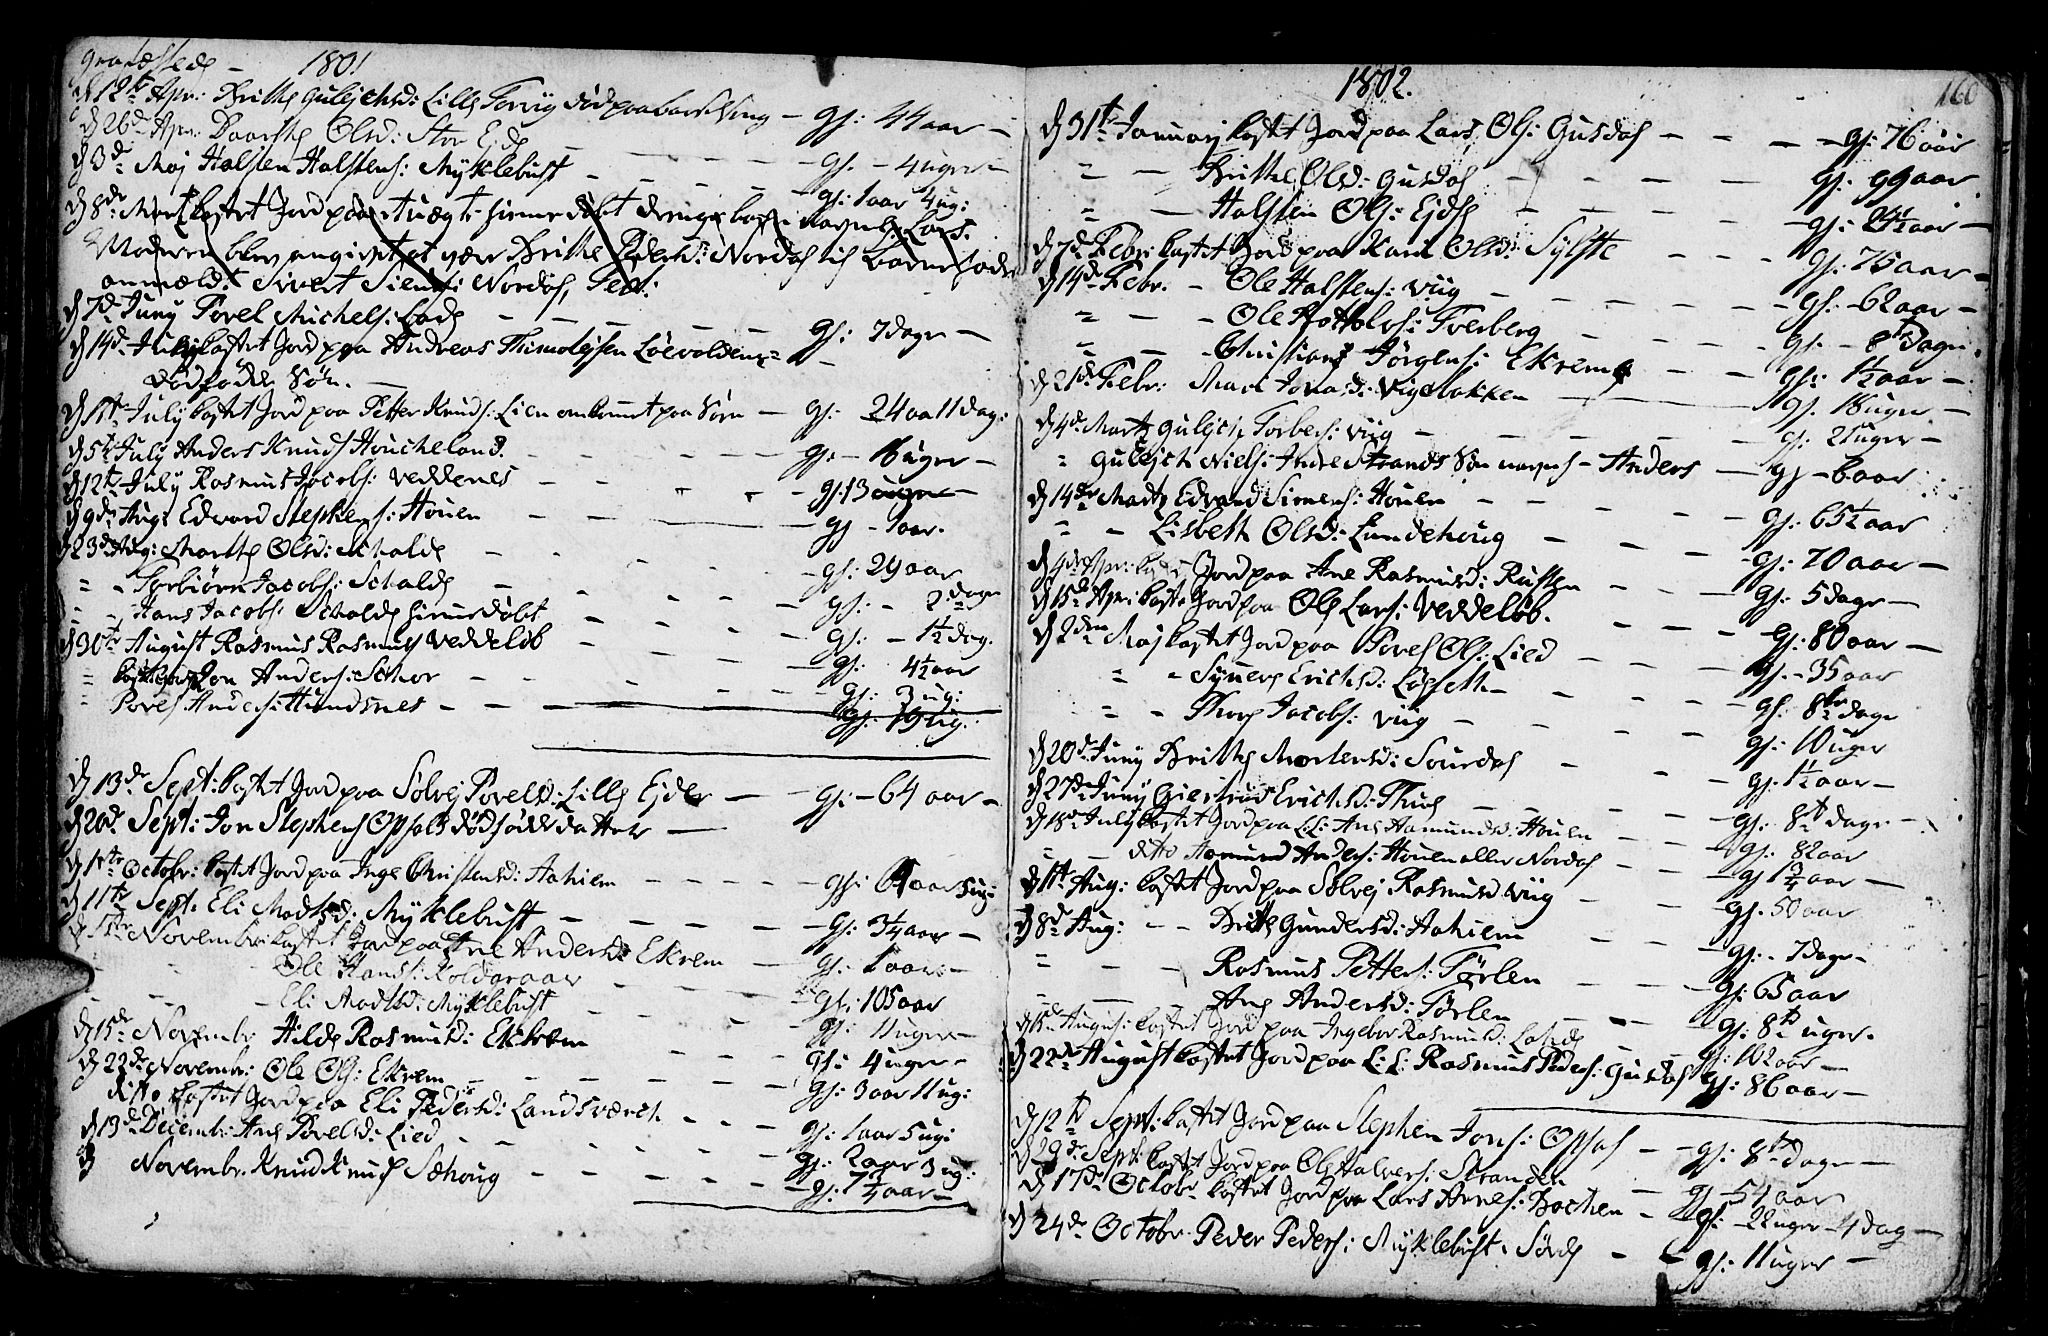 grafæstede – 1801
d 12te Apr: Brithe Gulejchsd: Lille Torvig død paa barselseng – gl: 44 aar –
d 26de Apr: Baarthe Olsd: Stor Ejde – – – gl: – 4 uger –
d 3de Maj Halsten Halstens: Myklebust – – – gl: 1 aar 4 ug:
d 8de kastet Jord paa et uægte hiemmedøbt drenge barn navnl: Lars.
Moderen blev angivet at være Brithe Pedersd: Nordal til Barnefader
anmældt Sivert Siens: Nordal,
d 7de Juny Povel Michels: Lade – – – gl: 7 dage –
d 14de July kastet Jord paa Andreas Løevoldens
dødfødde Søn. –
d 1te July kastet Jord paa Petter Knuds: Lien omkommet paa Søen – gl: 24 aar 11 dag:
d 5te July Anders Knuds Houcheland. – – – gl: – 16 uger –
d 12te July Rasmus Jacobs: Veddenes – – – gl: 13 ugne –
d 9de Aug: Edvard Stephens: Houen – – gl – 1 aar.
d 23de Aug: Marthe Olsd: Schalde – – gl: 29 aar
" – Torbiørn Jacobs: Schalde – – – gl: – 2 dage
" – Hans Jacobs: Schalde hiemmedøbt – – – gl: – 1½ dag.
d 30te August Rasmus Rasmus Veddeløb – – – gl: 4½ aar
" kastet Jord Jon Anders: Schor – – – gl: 3 ug:
" Povel Anders: Hundsnes – – – gl: 19 ug:
d 13de Sept: kastet Jord paa Sølvej Povelsd: Lille Ejder – – gl: – 64 aar –
d 20de Sept: Jon Stephens Opsals dødfødde datter –
d 1te Octobr: kastet Jord paa Inge Christensd: Aahiem – – – gl: 61 aar 5 ug:
d 11te Sept: Eli Madsd: Myklebust – – – gl: 3¼ aar –
d 1te Novembr: kastet Jord paa Ane Andersd: Ekrem – gl: 1 aar –
" – Ole Hans: Koldaraar – – – gl: 105 aar
" – Eli Madsd: Myklebust – – – gl: 11 uger –
d 15de Novembr Hilde Rasmusd: Ekrem – – – gl: 4 uger –
d 22de Novembr: Ole Ols: Ekrem – – – gl: 3 aar 11 ug:
ditto kastet Jord paa Eli Pedersd: Landsværch – – – gl: 1 aar 5 ug:
d 13de Decembr: Ane Povelsd: Lied – – – gl: 2 aar 3 ug:
d Novembr. Knud Knuds Sæhoug – – – gl: 7¼ aar –
1802. 160
d 31te January kastet Jord paa Lars Ols: Gusdal – – – gl: 76 aar
" – Brithe Olsd: Gusdal – – – gl: 99 aar
" – Halsten Ols: Ejde – – – gl: 24½ aar –
d 7de Febr: kastet Jord paa Kari Olsd: Sylte – – – gl: 75 aar –
d 14de Febr. – Ole Halstens: Viig – – – gl: – 62 aar –
" – – Ole Botholvs: Fverberg – – – gl: – 8te dage.
" – – Christian Jørgens: Ekrem – – gl: 1½ aar –
d 21de Febr: Mari Jonasd: Vigebakken – gl. 18 uger –
d 4de Martz Gulejch Torbers: Viig – – – gl: 21 uger –
" Gulejch Niels: Indre Strands Søn navnl – Anders – gl – 6 aar
d 14de Martz Edvard Simens: Houen – – – gl: 65½ aar
" – Lisbeth Olsd: Lundehoug – – – gl: 70 aar –
d 4de Apr: kast: Jord paa Ane Rasmusd: Rusten – – – gl: 5 dage –
d 15de Apr: kast: Jord paa Ole Lars: Veddeløb. – – – gl: 80 aar –
d 2den Maj kastet Jord paa Povel Ols: Lied – – – gl. – 35 aar
" – Synneve Erichsd: Løseth – – – gl: 8te dage
" – Thore Jacobs: Viig – – – gl: 10 uger
d 20de Juny Brithe Mortensd: Sourdal – – – gl: 1½ aar –
d 27de Juny Giertrud Erichsd: Thue – – – gl: 8te dage –
d 18de July kastet Jord paa Li: Ane Aamundsd: Houen – – gl: 82 aar
" – ditto Aamund Anders: Houen aller Nordal – – gl ¾ aar –
d 1te Aug: kastet Jord paa Sølvej Rasmusd Viig – – – gl. 50 aar
d 8de Aug: – – Brithe Gundersd: Aahiem – – – gl: – 7 dage –
" – – Rasmus Petters: Tørlen – – – gl: 65 aar
" – – Ane Andersd: Tørlen – – – gl: 8te uger.
d 15de Augus: kastet Jord paa Ingebor Rasmusd: Lahde – gl: 102 aar –
d 22de August kastet Jord paa L: L: Rasmus Peders: Gusdal gl: 86 aar –
d 12te Sept: kastet Jord paa Stephen Jons: Opsal – – gl: 8te dage –
d 29de Sept: kastet Jord paa Ole Halvers: Stranden – gl – 54 aar
d 17de Octobr kastet Jord paa Lars Arnes: Bachen – gl: – 22 uger – 4 dag –
d 24de Octobr Peder Peders: Myklebust: Sørde – – gl: 11 uger –